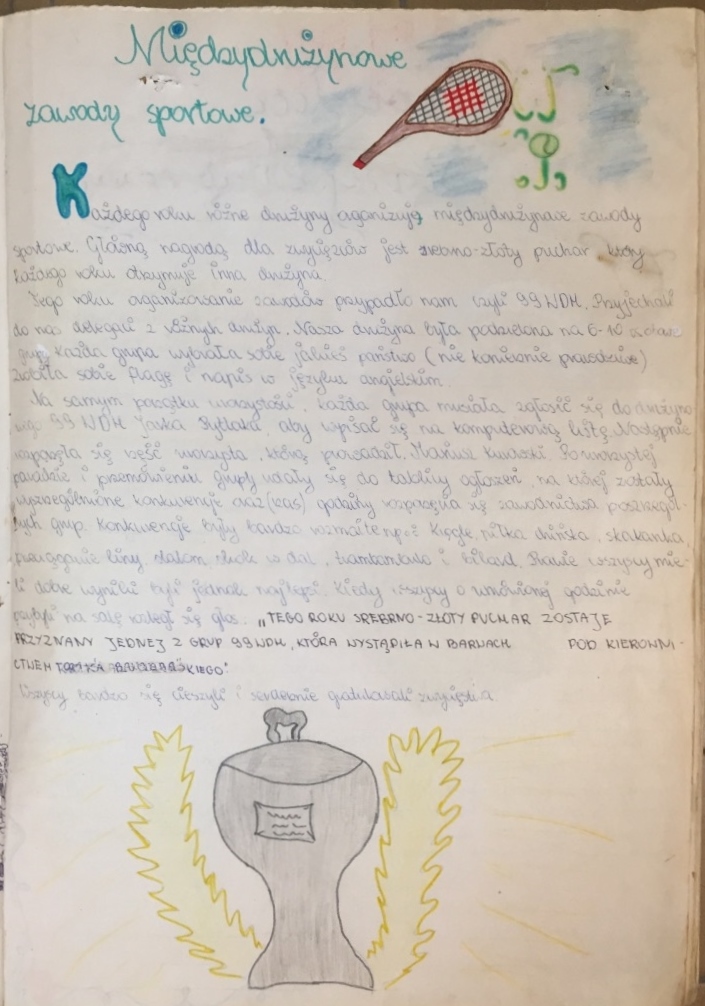 Międzydrużynowe
zawody sportowe.
Każdego roku różne drużyny organizują międzydrużynowe zawody
sportowe. Główną nagrodą dla zwycięzców jest srebrno-złoty puchar który
każdego roku otrzymuje inna drużyna.
Tego roku organizowanie zawodów przypadło nam czyli 99 WDH. Przyjechali
do nas delegaci z różnych drużyn. Nasza drużyna była podzielona na 6-10
grup. Każda grupa wybrała sobie jakieś państwo (nie koniecznie prawdziwe)
zrobiła sobie flagę i napis w języku angielskim.
Na samym początku uroczystości, każda grupa musiała zgłosić się do drużyno
wego 99 WDH Jacka aby wpisał się na komputerową listę. Następnie
rozpoczęła się część uroczysta, którą prowadził Mariusz Po uroczystej
paradzie i przemówieniu grupy udały się do tablicy ogłoszeń, na której zostały
wyszczególnione konkurencje oraz (czas) godziny rozpoczęcia się zawodnictwa poszczegól-
nych grup. Konkurencje były bardzo rozmaite np: Kręgle, piłka chińska, skakanka,
przeciąganie liny, slalom, skok w dal, i bilard. Prawie wszyscy mie-
li dobre wyniki byli jednak najlepsi. Kiedy wszyscy o umówionej godzinie
przybyli na salę rozległ się głos. „TEGO ROKU SREBRNO-ZŁOTY PUCHAR ZOSTAJE
PRZYZNANY JEDNEJ Z GRUP 99WDH, KTÓRA WYSTĄPIŁA W BARWACH POD KIEROWNI-
CTWEM
Wszyscy bardzo się cieszyli i serdecznie gratulowali zwycięzcą.